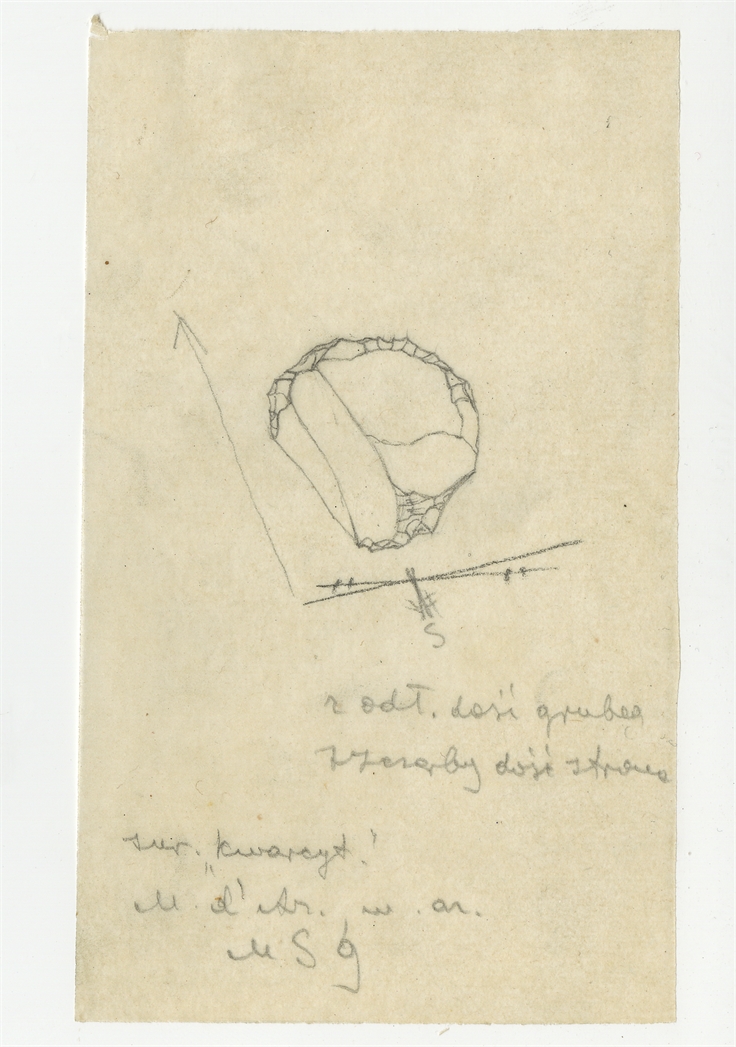 S
z odł. dość grubeg
szczerby dość strome
sur. "kwarcyt."
M. d'Ar. w. ar.
M S g